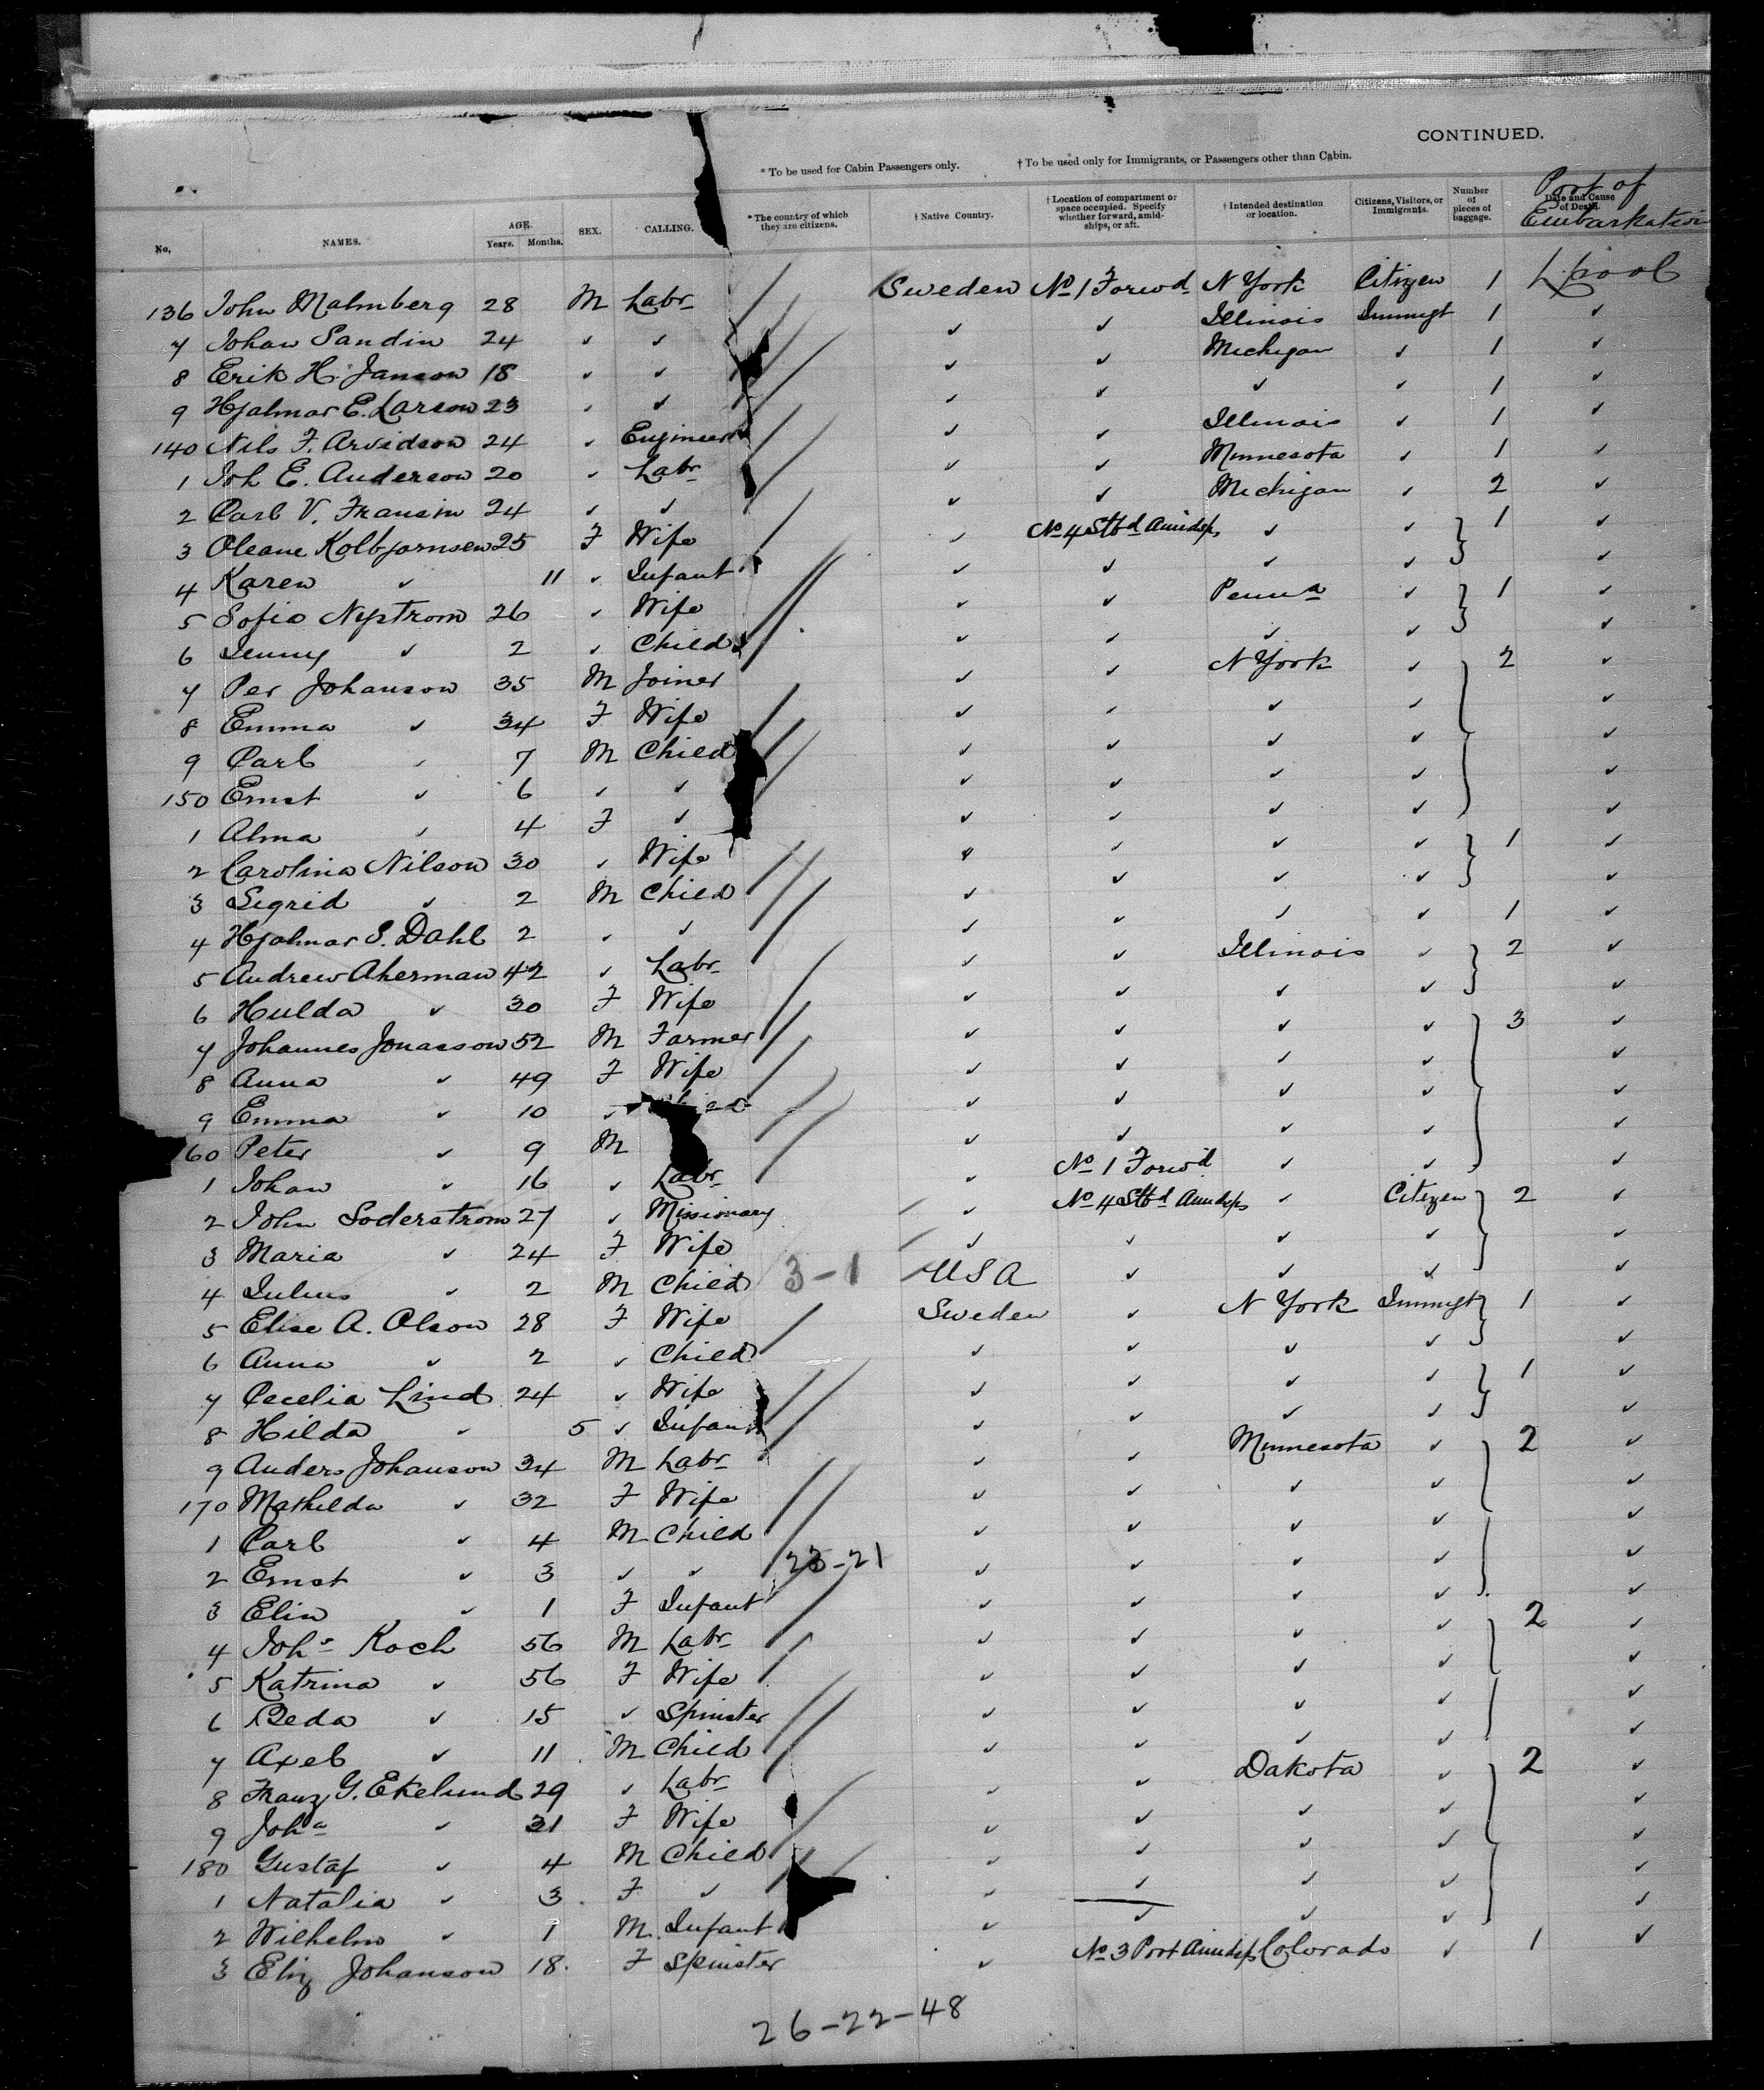 CONTINUED.
* To be used for Cabin Passengers only. † To be used only for Immigrants, or Passengers other than Cabin.
No. NAMES. AGE. Years. Months. SEX. CALLING. * The country of which they are citizens. † Native Country. † Location of compartment or space occupied. Specify whether forward, amid-ships, or aft. † Intended destination or location. Citizens, Visitors, or Immigrants. Number of pieces of baggage. Date and Cause of Death. Port of Embarkation
136 John Malmberg 28 M Labr Sweden No 1 Forwd N York Citizen 1 L'pool
7 Johan Sandin 24 " " " " Illinois Immigt 1 "
8 Erik H. Janson 18 " " " " Michigan " 1 "
9 Hjalmar E. Larson 23 " " " " " " 1 "
140 Nils F. Arvidson 24 " Engineer " " Illinois " 1 "
1 Joh E. Anderson 20 " Labr " " Minnesota " 1 "
2 Carl V. Fransin 24 " " " " Michigan " 2 "
3 Oleane Kolbjornsen 25 F Wife " No 4 Stbd Amidsps " " 1 "
4 Karen " 11 " Infant " " " " "
5 Sofia Nystrom 26 " Wife " " Penna " 1 "
6 Jenny " 2 " Child " " " " "
7 Per Johanson 35 M Joiner " " N York " 2 "
8 Emma " 34 F Wife " " " " "
9 Carl " 7 M Child " " " " "
150 Ernst " 6 " " " " " " "
1 Alma " 4 F " " " " " "
2 Carolina Nilson 30 " Wife " " " " 1 "
3 Sigrid " 2 M Child " " " " "
4 Hjalmar S. Dahl 2 " " " " " " 1 "
5 Andrew Akerman 42 " Labr " " Illinois " 2 "
6 Hulda " 30 F Wife " " " " "
7 Johannes Jonasson 52 M Farmer " " " " 3 "
8 Anna " 49 F Wife " " " " "
9 Emma " 10 " " " " " "
160 Peter " 9 M " " " " "
1 Johan " 16 " Labr " No 1 Forwd " " "
2 John Soderstrom 27 " Missionary " No 4 Stbd Amidsps " Citizen 2 "
3 Maria " 24 F Wife " " " " "
4 Julius " 2 M Child 3-1 USA " " " "
5 Elise A. Olson 28 F Wife Sweden " N York Immigt 1 "
6 Anna " 2 " Child " " " " "
7 Cecelia Lind 24 " Wife " " " " 1 "
8 Hilda " 5 " Infant " " " " "
9 Anders Johanson 34 M Labr " " Minnesota " 2 "
170 Mathilda " 32 F Wife " " " " "
1 Carl " 4 M Child " " " " "
2 Ernst " 3 " " 23-21 " " " " "
3 Elin " 1 F Infant " " " " "
4 Johs Koch 56 M Labr " " " " 2 "
5 Katrina " 56 F Wife " " " " "
6 Beda " 15 " Spinster " " " " "
7 Axel " 11 M Child " " " " "
8 Franz G. Ekelund 29 " Labr " " Dakota " 2 "
9 Joha " 31 F Wife " " " " "
180 Gustaf " 4 M Child " " " " "
1 Natalia " 3 F " " " " " "
2 Wilhelm " 1 M Infant " " " " "
3 Eliz Johanson 18 F Spinster " No 3 Port Amidsps Colorado " 1 "
26-22-48